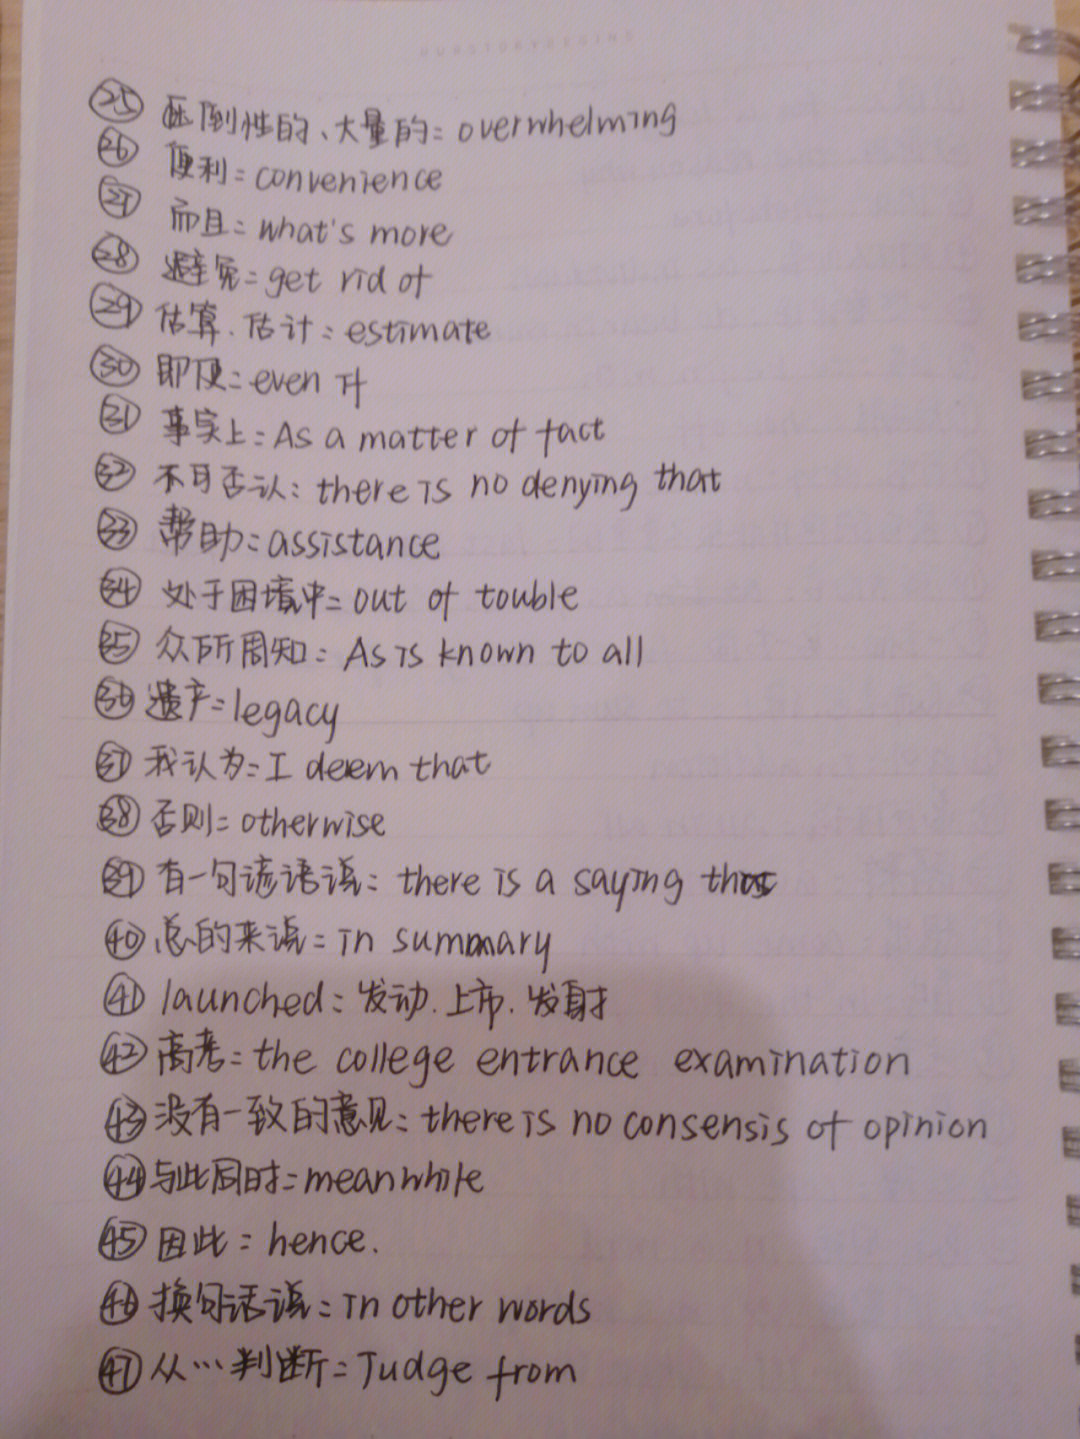 ㉕ 压倒性的、大量的: overwhelming
㉖ 便利: convenience
㉗ 而且: what's more
㉘ 避免: get rid of
㉙ 估算.估计: estimate
㉚ 即使: even if
㉛ 事实上: As a matter of fact
㉜ 不可否认: there is no denying that
㉝ 帮助: assistance
㉞ 处于困境中: out of touble
㉟ 众所周知: As is known to all
㊱ 遗产: legacy
㊲ 我认为: I deem that
㊳ 否则: otherwise
㊴ 有一句谚语说: there is a saying that
㊵ 总的来说: in summary
㊶ launched: 发动.上市.发射
㊷ 高考: the college entrance examination
㊸ 没有一致的意见: there is no consensis of opinion
㊹ 与此同时: meanwhile
㊺ 因此: hence.
㊻ 换句话说: in other words
㊼ 从…判断: Judge from